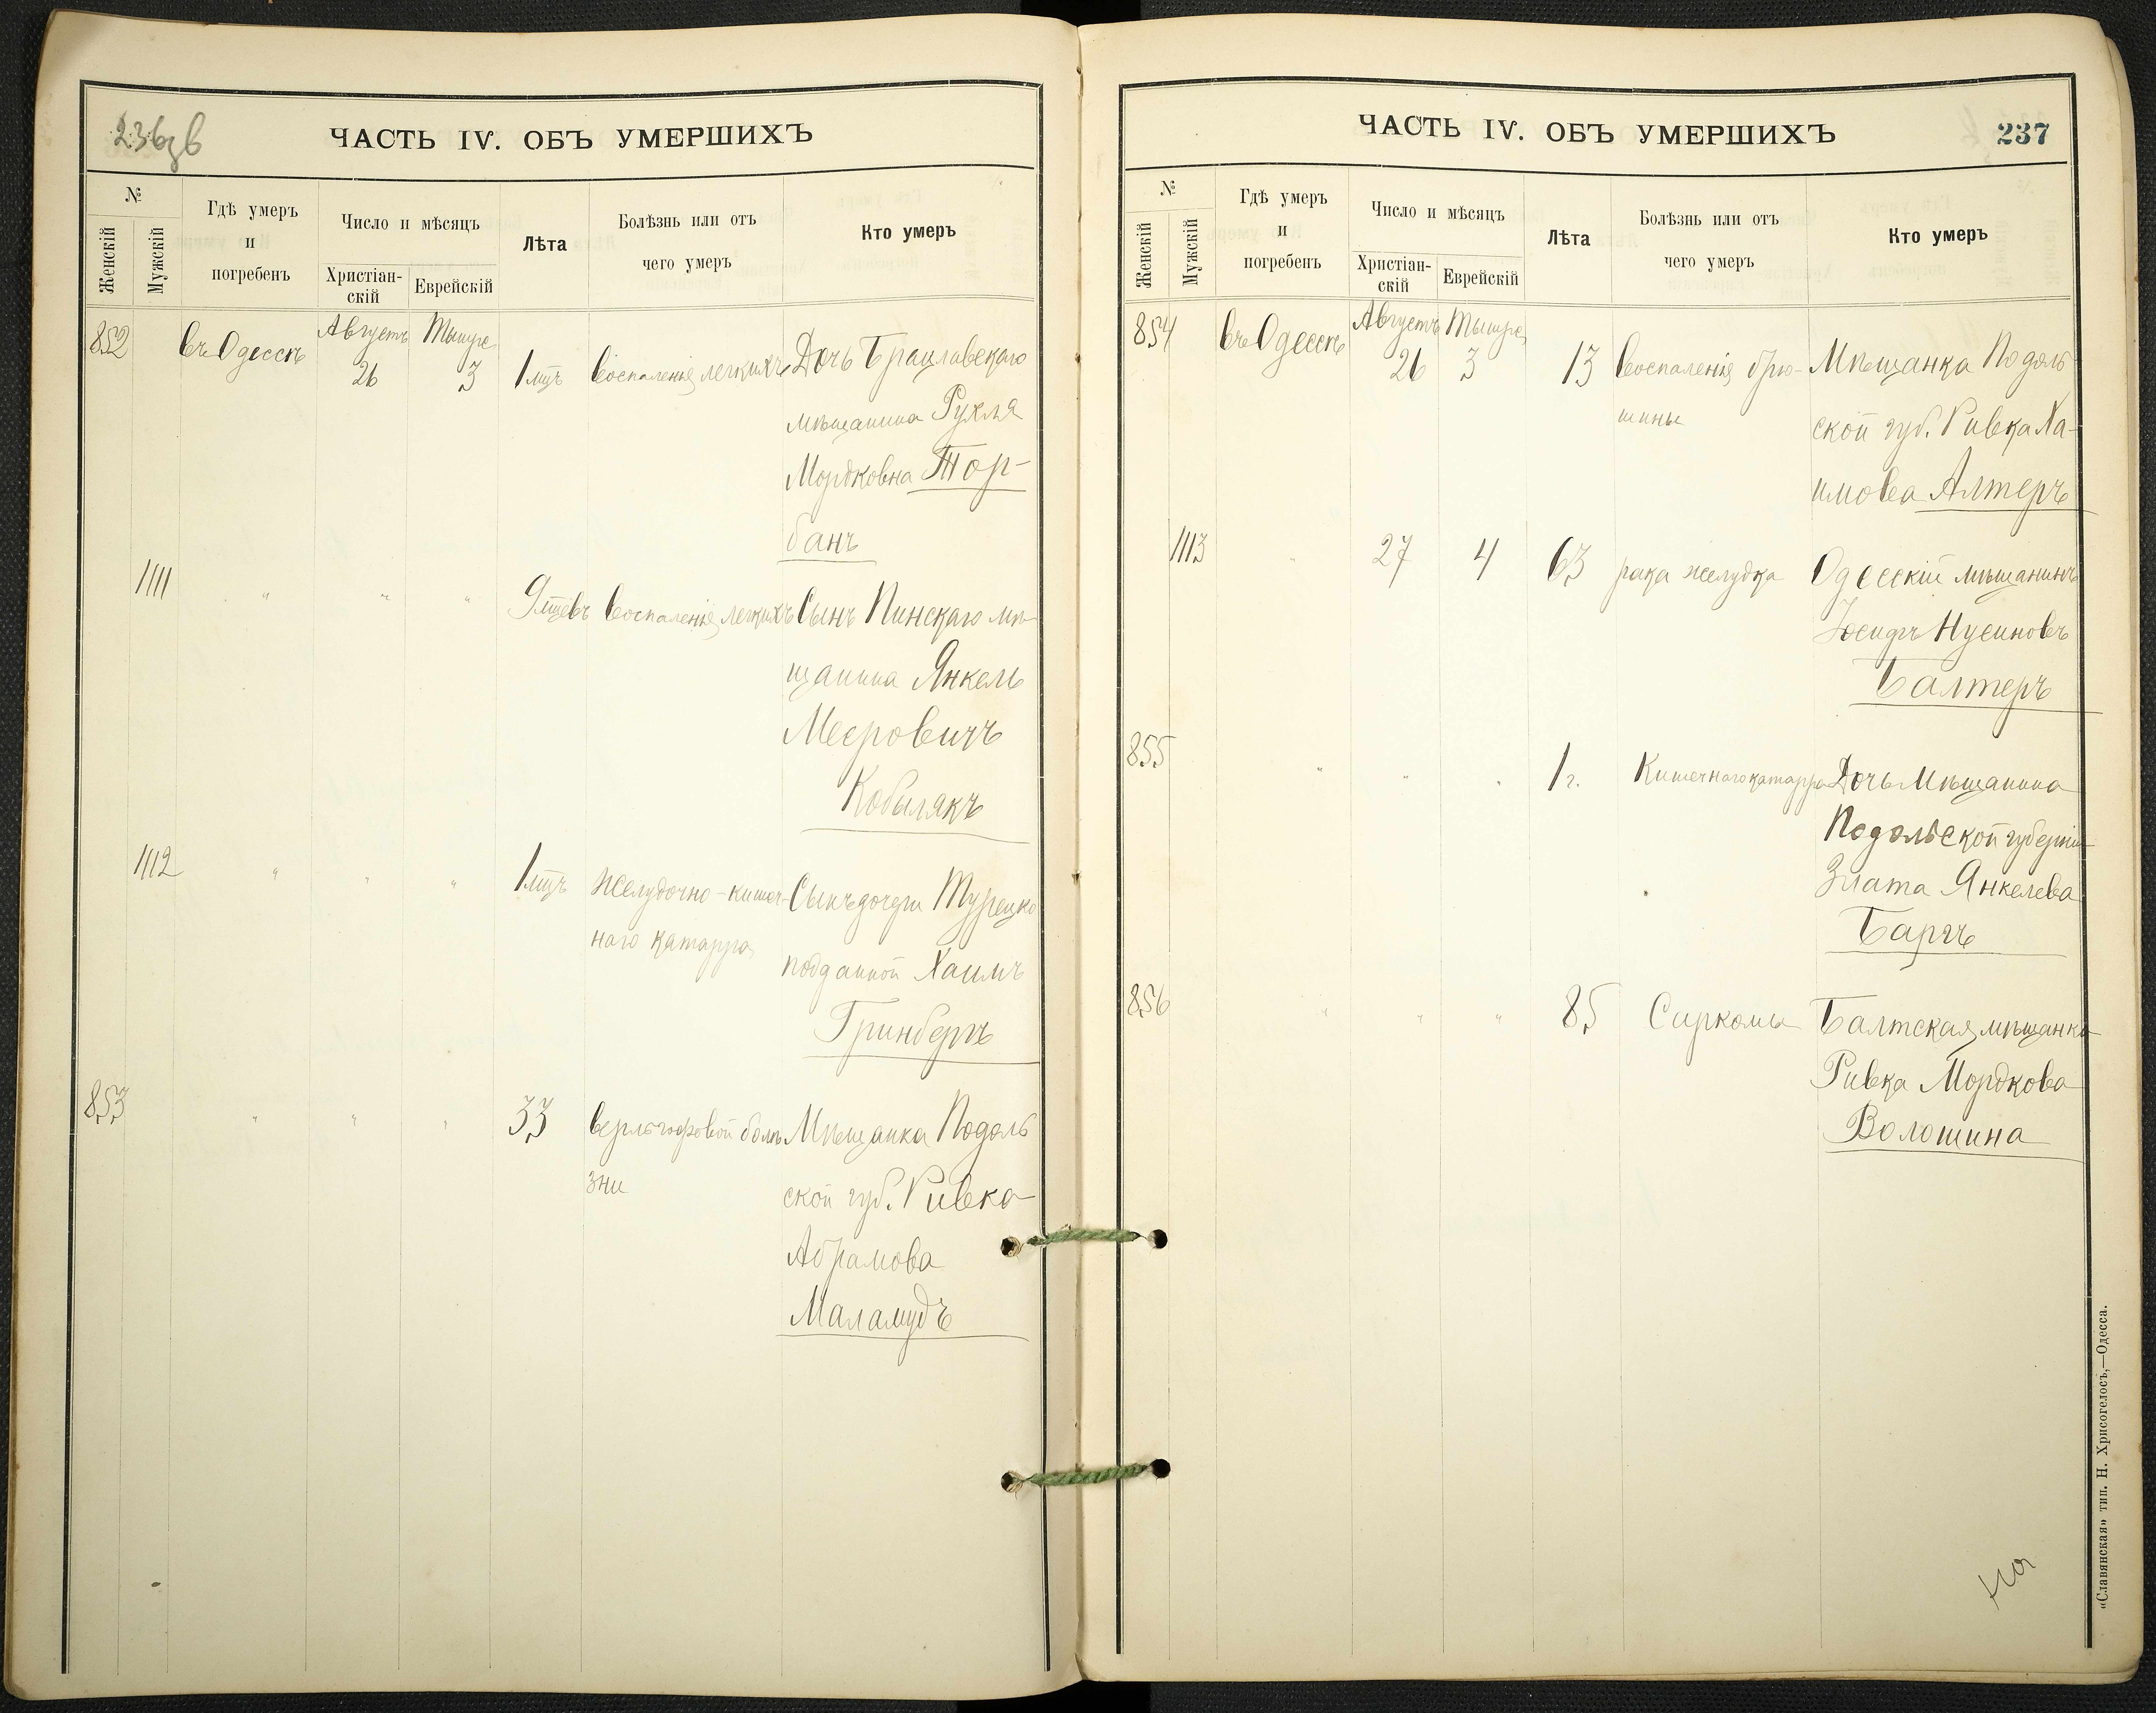 236 об
ЧАСТЬ IV. ОБЪ УМЕРШИХЪ
№
Женскій
Мужскій
Гдѣ умеръ
и
погребенъ
Число и мѣсяцъ
Христіан-
скій
Еврейскій
Лѣта
Болѣзнь или отъ
чего умеръ
Кто умеръ
852 въ Одессѣ Августъ 26 Тишре 3 1 мцъ воспаленія легкихъ Дочь Брацлавскаго
мѣщанина Рухля
Мордковна Тор-
банъ
1111 " " " 9 мцевъ воспаленія легкихъ Сынъ Пинскаго мѣ-
щанина Янкель
Меєровичъ
Кобылякъ
1112 " " " 1 мцъ Желудочно-кишеч- Сынъ дочери Турецко
наго катарра подданной Хаимъ
Гринбергъ
853 " " " 33 верльгофовой болѣ- Мѣщанка Подоль
зни ской губ. Ривка
Абрамова
Маламудъ
ЧАСТЬ IV. ОБЪ УМЕРШИХЪ
237
№
Женскій
Мужскій
Гдѣ умеръ
и
погребенъ
Число и мѣсяцъ
Христіан-
скій
Еврейскій
Лѣта
Болѣзнь или отъ
чего умеръ
Кто умеръ
854 въ Одессѣ Августъ 26 Тишре 3 13 воспаленія брю- Мѣщанка Подоль
шины ской губ. Ривка Ха-
имова Алтеръ
1113 " 27 4 63 рака желудка Одесскій мѣщанинъ
Іосифъ Нусиновъ
Балтеръ
855 " " " 1 г. Кишечнаго катарра Дочь Мѣщанина
Подольской губерніи
Злата Янкелева
Баргъ
856 " " " 85 Саркомы Балтская мѣщанка
Ривка Мордкова
Волошина
«Славянская» тип. Н. Хрисогелосъ,—Одесса.